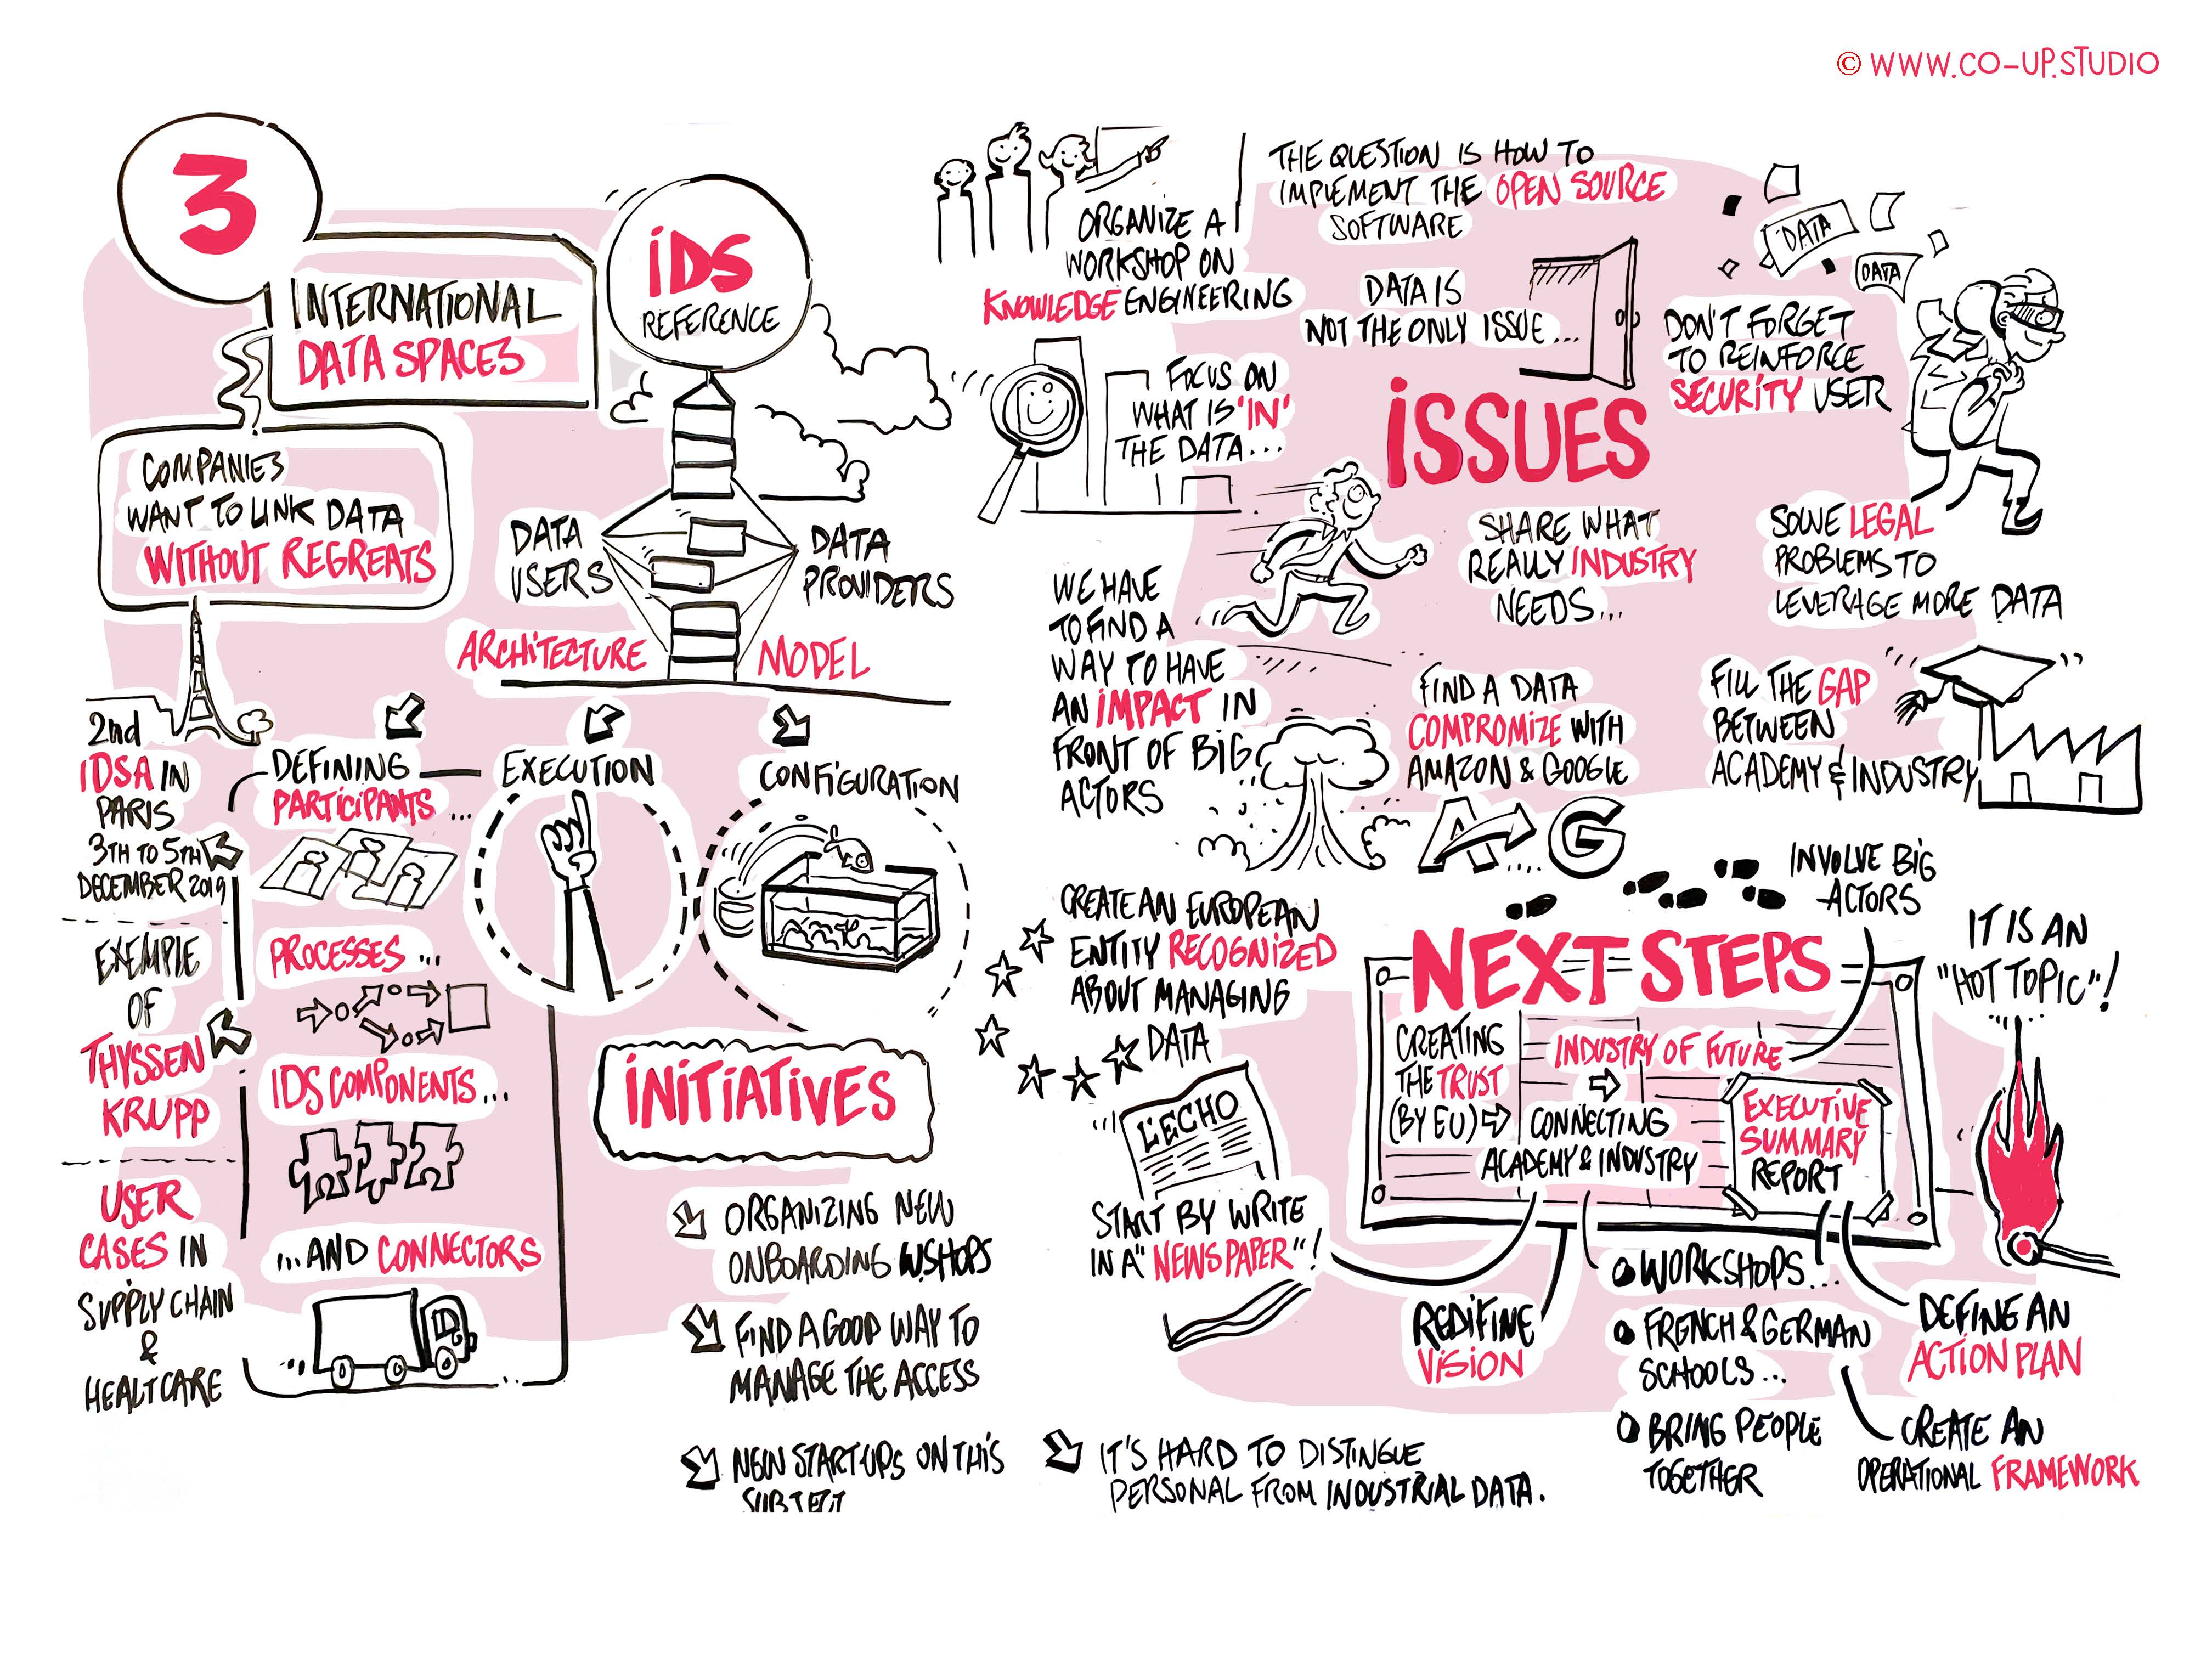 © WWW.CO-UP.STUDIO
3
INTERNATIONAL
DATA SPACES
COMPANIES
WANT TO LINK DATA
WITHOUT REGREATS
IDS
REFERENCE
DATA
USERS
DATA
PROVIDERS
ARCHITECTURE
MODEL
2nd
IDSA IN
PARIS
3TH TO 5TH
DECEMBER 2019
EXEMPLE
OF
THYSSEN
KRUPP
USER
CASES IN
SUPPLY CHAIN
&
HEALTCARE
DEFINING
PARTICIPANTS...
PROCESSES...
IDS COMPONENTS...
...AND CONNECTORS
EXECUTION
CONFIGURATION
INITIATIVES
ORGANIZING NEW
ONBOARDING W.SHOPS
FIND A GOOD WAY TO
MANAGE THE ACCESS
NEW START-UPS ON THIS
ORGANIZE A
WORKSHOP ON
KNOWLEDGE ENGINEERING
THE QUESTION IS HOW TO
IMPLEMENT THE OPEN SOURCE
SOFTWARE
DATA IS
NOT THE ONLY ISSUE...
DATA
DATA
DON'T FORGET
TO REINFORCE
SECURITY USER
FOCUS ON
WHAT IS "IN"
THE DATA...
ISSUES
SHARE WHAT
REALLY INDUSTRY
NEEDS...
SOLVE LEGAL
PROBLEMS TO
LEVERAGE MORE DATA
WE HAVE
TO FIND A
WAY TO HAVE
AN IMPACT IN
FRONT OF BIG
ACTORS
FIND A DATA
COMPROMIZE WITH
AMAZON & GOOGLE
A....G
FILL THE GAP
BETWEEN
ACADEMY & INDUSTRY
CREATE AN EUROPEAN
ENTITY RECOGNIZED
ABOUT MANAGING
DATA
L'ECHO
START BY WRITE
IN A "NEWS PAPER"!
INVOLVE BIG
ACTORS
NEXT STEPS
CREATING
THE TRUST
(BY EU)
INDUSTRY OF FUTURE
CONNECTING
ACADEMY & INDUSTRY
EXECUTIVE
SUMMARY
REPORT
IT IS AN
"HOT TOPIC"!
REDIFINE
VISION
WORKSHOPS...
FRENCH & GERMAN
SCHOOLS...
BRING PEOPLE
TOGETHER
DEFINE AN
ACTION PLAN
CREATE AN
OPERATIONAL FRAMEWORK
IT'S HARD TO DISTINGUE
PERSONAL FROM INDUSTRIAL DATA.